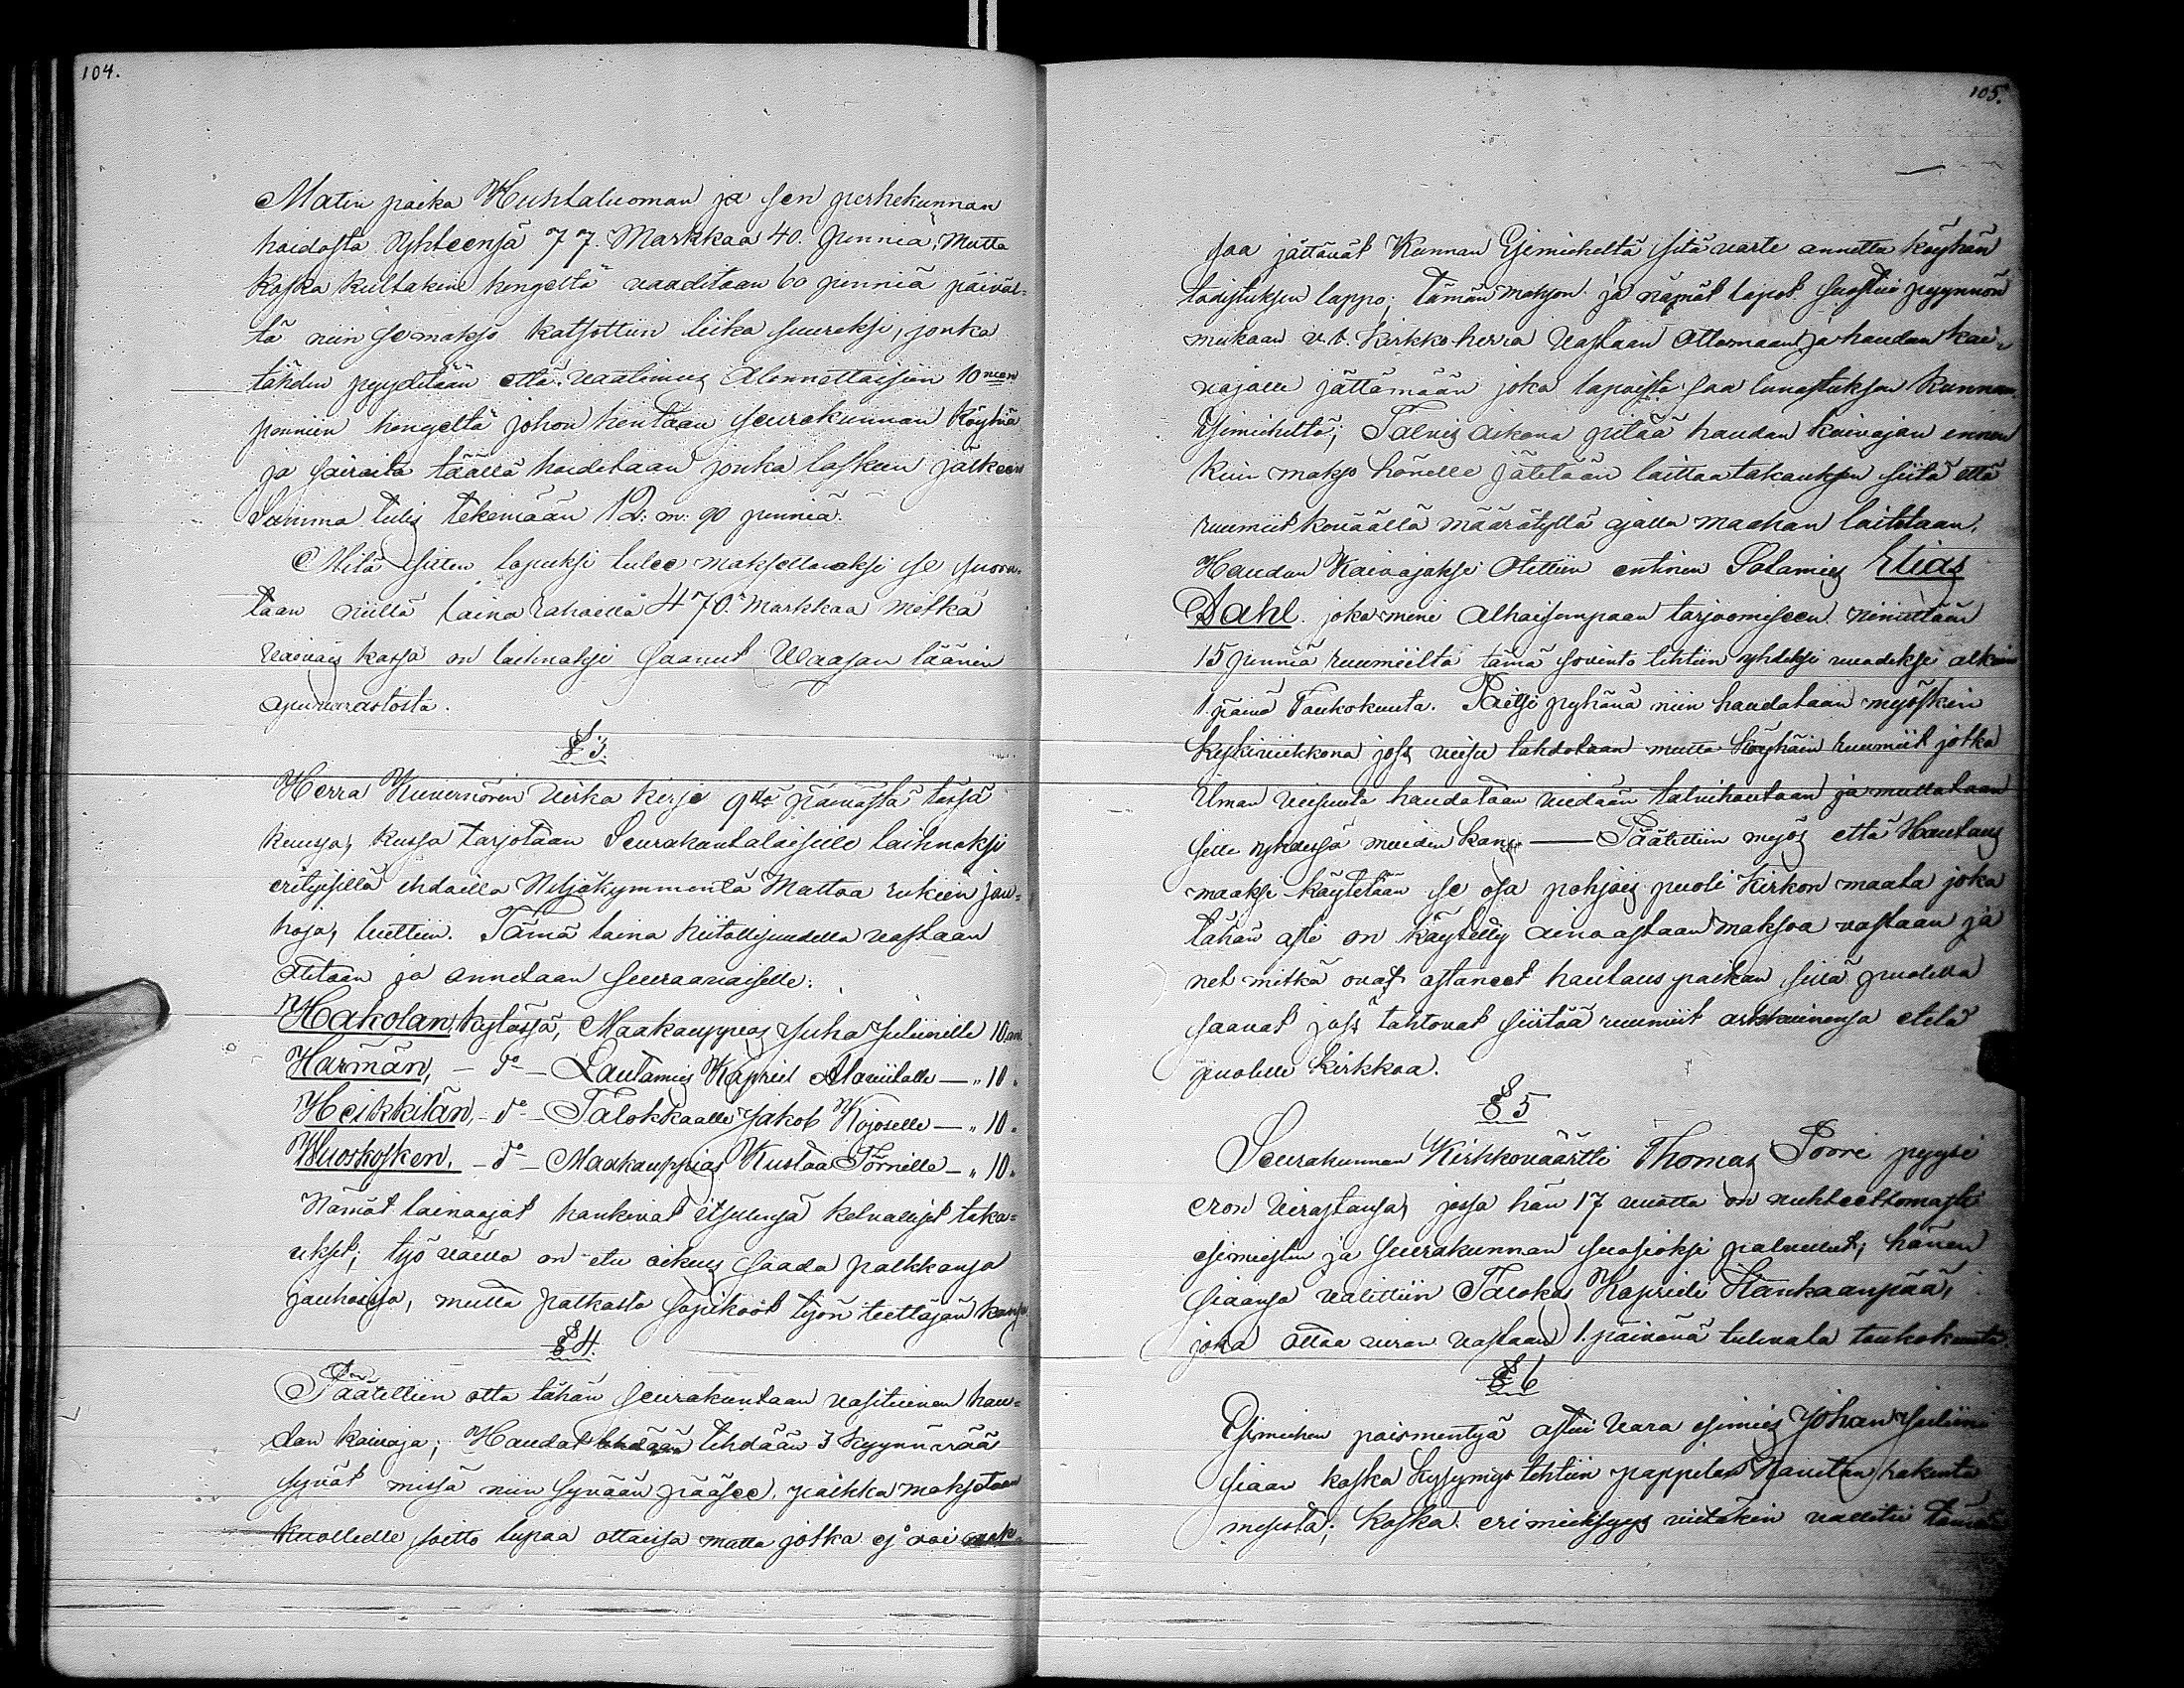 104.
Matin poika Huhtaluoman ja sen perhekunnan
hoidosta Yhteensä 77. Markkaa 40. penniä, Mutta
koska kultakin hengeltä vaaditaan 60 penniä päiväl-
tä niin se makso katsottiin liika suureksi, jonka
tähden pyydetään että vaatimus Alennettaisiin 10 nen
penniin hengeltä johon hentaan seurakunnan köyhiä
ja sairaita täällä hoidetaan jonka laskun jälkeen
Summa tulis tekemään 12: m: 90 penniä.
Mitä sitten lopuksi tulee maksettavaksi se suori-
taan niillä laina rahoilla 470 markkaa mitkä
vaivais kassa on laihnaksi saanut Waasan läänin
apuvarastosta.
§ 3
Herra Kuvernörin Virka kirje 9 stä päivästä tässä
kuussa, kussa tarjotaan Seurakuntalaisille laihnaksi
erityisillä ehdoilla Neljäkymmentä Mattoa rukiin jau-
hoja, luettiin. Tämä laina kiitollisuudella vastaan
otetaan ja annetaan seuraavaiselle:
Hakolan kylässä, Maakauppias Juha Juliinille 10 m.
Harmän, - do - Lautamies Kapriel Alaviitalle — „ 10 „
Heikkilän, - do - Talokkaalle Jakob Kojoselle — „ 10 „
Wuoskosken. - do - Maakauppias Kustaa Törnille — „ 10 „
Nämät lainaajat hankivat itsellensä kelvolliset taka-
ukset; työ väellä on etu oikeus saada palkkansa
jauhoissa, mutta palkasta sopikoot työn teettäjän kanssa
§ 4.
Päätettiin otta tähän seurakuntaan vasituinen hau-
dan kaivaja; Haudat tehdään tehdään 3 kyynärää
syvät missä niin syvään pääsee, palkka maksetaan
kuolleelle soitto lupaa ottaissa mutta jotka ej voi mak-
105.
saa jättävät Kunnan Esimieheltä sitä varte annettu köyhän
todistuksen lappo; tämän makson ja nämät lapot suostui pyynnön
mukaan v. t. kirkko herra vastaan ottamaan ja haudan kai-
vajalle jättämään joka lapoista saa lunastuksen kunnan
Esimieheltä; Talvis aikana pitää haudan kaivajan ennen
kuin makso hänelle jätetään laittaa takauksen siitä että
ruumiit keväällä määrätyllä ajalla maahan laitetaan.
Haudan Kaivajaksi otettiin entinen Sotamies Elias
Dahl. joka meni alhaisempaan tarjoomiseen nimittäin
15 penniä ruumiilta tämä sovinto tehtiin yhdeksi vuodeksi alkain
1 päivä Toukokuuta. Paitsi pyhänä niin haudataan myöskin
keskiviikkona jos veisu tahdotaan mutta köyhäin ruumiit jotka
ilman veisuuta haudataan viedään talvihautaan ja mullataan
sille yhdessä muiden kans — Päätettiin myös että Hautaus
maaksi käytetään se osa pohjois puoli kirkon maata joka
tähän asti on käytetty ainoastaan maksoa vastaan ja
net mitkä ovat ostaneet hautaus paikan sillä puolella
saavat jos tahtovat siirtää ruumiit arkkuinensa etelä
puolelle kirkkoa.
§ 5
Seurakunnan Kirkkoväärtti Thomas Poori pyysi
eron virastansa, jossa hän 17 vuotta on nuhteettomasti
esimiesten ja seurakunnan suosioksi palvellut; hänen
siaansa valittiin Talokas Kaprieli Hankaanpää,
joka ottaa viran vastaan 1. päivänä tulevata toukokuuta.
§ 6
Esimiehen poismentyä astui Vara esimies Johan Juliini
siaan koska kysymys tehtiin pappilan Navetan rakenta
misesta; koska erimielisyys vieläkin vallitsi tämän